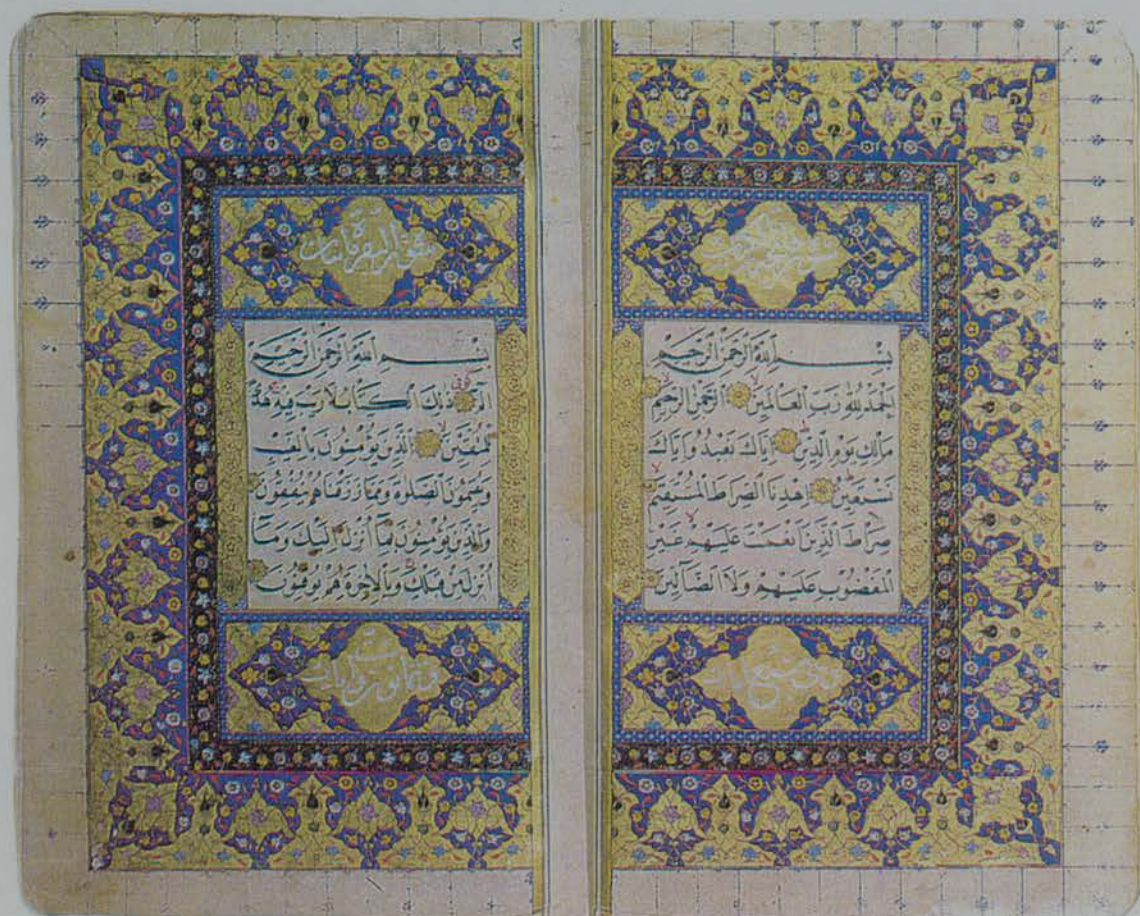 بِسْمِ اللّٰهِ الرَّحْمٰنِ الرَّحِيمِ
اَلْحَمْدُ لِلّٰهِ رَبِّ الْعَالَمِينَ اَلرَّحْمٰنِ الرَّحِيمِ
مَالِكِ يَوْمِ الدِّينِ اِيَّاكَ نَعْبُدُ وَاِيَّاكَ
نَسْتَعِينُ اِهْدِنَا الصِّرَاطَ الْمُسْتَقِيمَ
صِرَاطَ الَّذِينَ اَنْعَمْتَ عَلَيْهِمْ غَيْرِ
الْمَغْضُوبِ عَلَيْهِمْ وَلَا الضَّٓالِّينَ
سورة البقرة
بِسْمِ اللّٰهِ الرَّحْمٰنِ الرَّحِيمِ
الٓمٓ ذٰلِكَ الْكِتَابُ لَا رَيْبَ فِيهِ هُدًى
لِلْمُتَّقِينَ اَلَّذِينَ يُؤْمِنُونَ بِالْغَيْبِ
وَيُقِيمُونَ الصَّلٰوةَ وَمِمَّا رَزَقْنَاهُمْ يُنْفِقُونَ
وَالَّذِينَ يُؤْمِنُونَ بِمَٓا اُنْزِلَ اِلَيْكَ وَمَٓا
اُنْزِلَ مِنْ قَبْلِكَ وَبِالْاٰخِرَةِ هُمْ يُوقِنُونَ